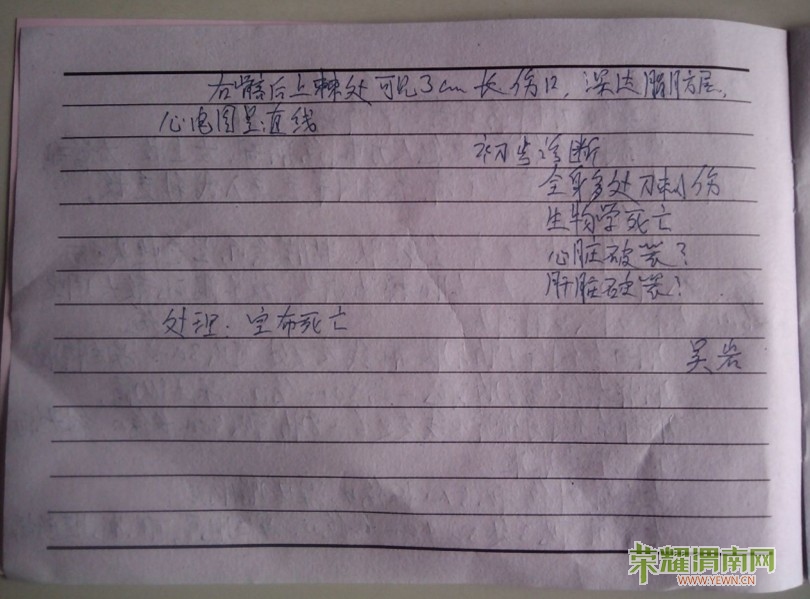 右髂后上棘处可见3cm长伤口，深达脂肪层，
心电图呈直线
初步诊断
全身多处刀刺伤
生物学死亡
心脏破裂？
肝脏破裂？
处理：宣布死亡
吴岩
荣耀渭南网
WWW.YEWN.CN